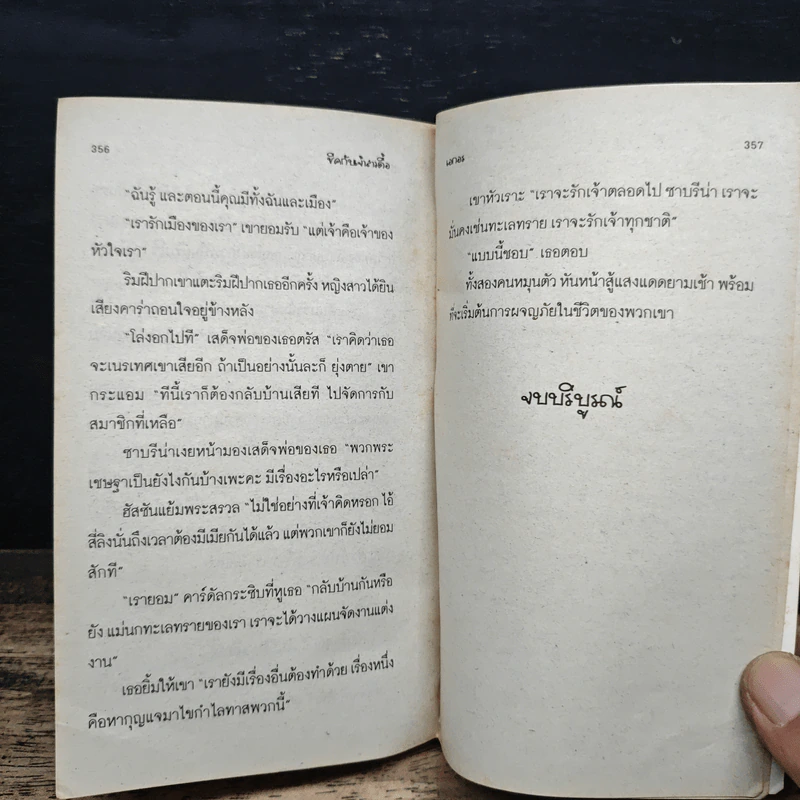 356
“ฉันรู้ และตอนนี้คุณมีทั้งฉันและเมือง”
“เรารักเมืองของเรา” เขายอมรับ “แต่เจ้าคือเจ้าของ
หัวใจเรา”
ริมฝีปากเขาแตะริมฝีปากเธออีกครั้ง หญิงสาวได้ยิน
เสียงคาร่าถอนใจอยู่ข้างหลัง
“โล่งอกไปที” เสด็จพ่อของเธอตรัส “เราคิดว่าเธอ
จะเนรเทศเขาเสียอีก ถ้าเป็นอย่างนั้นละก็ ยุ่งตาย” เขา
กระแอม “ทีนี้เราก็ต้องกลับบ้านเสียที ไปจัดการกับ
สมาชิกที่เหลือ”
ซาบรีน่าเงยหน้ามองเสด็จพ่อของเธอ “พวกพระ
เชษฐาเป็นยังไงกันบ้างเพะคะ มีเรื่องอะไรหรือเปล่า”
ฮัสซันแย้มพระสรวล “ไม่ใช่อย่างที่เจ้าคิดหรอก ไอ้
สี่ลิงนั่นถึงเวลาต้องมีเมียกันได้แล้ว แต่พวกเขาก็ยังไม่ยอม
สักที”
“เรายอม” คาร์ดัลกระซิบที่หูเธอ “กลับบ้านกันหรือ
ยัง แม่นกทะเลทรายของเรา เราจะได้วางแผนจัดงานแต่ง
งาน”
เธอยิ้มให้เขา “เรายังมีเรื่องอื่นต้องทำด้วย เรื่องหนึ่ง
คือหากุญแจมาไขกำไลทาสพวกนี้”
357
เขาหัวเราะ “เราจะรักเจ้าตลอดไป ซาบรีน่า เราจะ
มั่นคงเช่นทะเลทราย เราจะรักเจ้าทุกชาติ”
“แบบนี้ชอบ” เธอตอบ
ทั้งสองคนหมุนตัว หันหน้าสู้แสงแดดยามเช้า พร้อม
ที่จะเริ่มต้นการผจญภัยในชีวิตของพวกเขา
จบบริบูรณ์